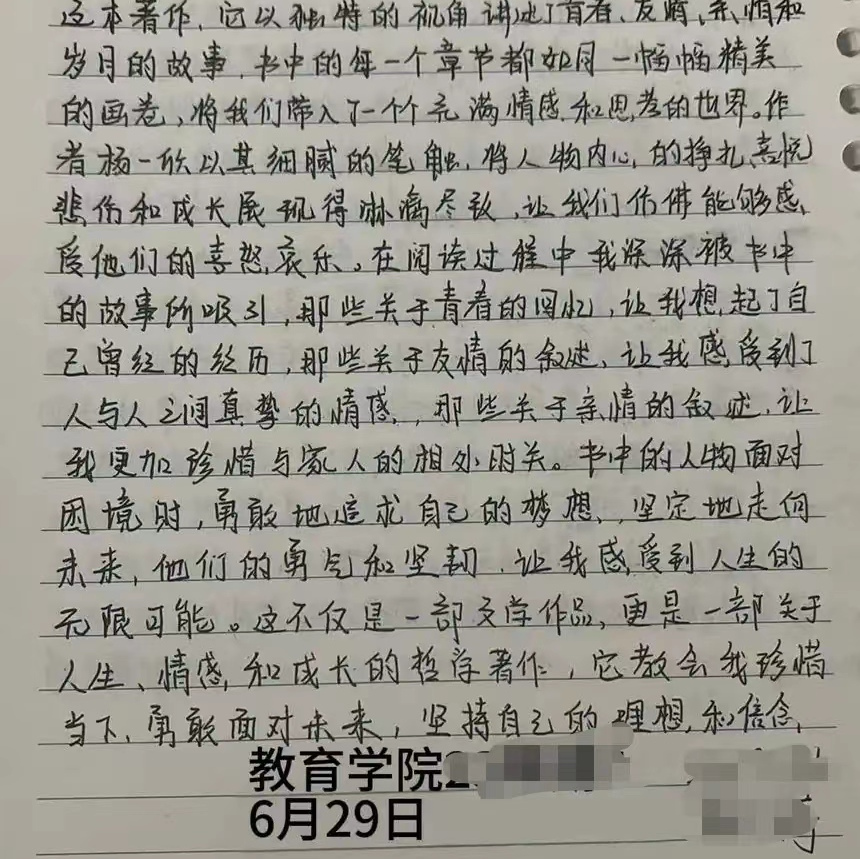 这本著作,它以独特的视角讲述了青春、友情、亲情和
岁月的故事,书中的每一个章节都如同一幅幅精美
的画卷,将我们带入了一个充满情感和思考的世界。作
者杨一欣以其细腻的笔触,将人物内心的挣扎、喜悦
悲伤和成长展现得淋漓尽致,让我们仿佛能够感
受他们的喜怒哀乐。在阅读过程中我深深被书中
的故事所吸引,那些关于青春的回忆,让我想起了自
己曾经的经历,那些关于友情的叙述,让我感受到了
人与人之间真挚的情感,那些关于亲情的叙述,让
我更加珍惜与家人的相处时光。书中的人物面对
困境时,勇敢地追求自己的梦想,坚定地走向
未来,他们的勇气和坚韧,让我感受到人生的
无限可能。这不仅是一部文学作品,更是一部关于
人生、情感和成长的哲学著作,它教会我珍惜
当下,勇敢面对未来,坚持自己的理想和信念,
教育学院
6月29日